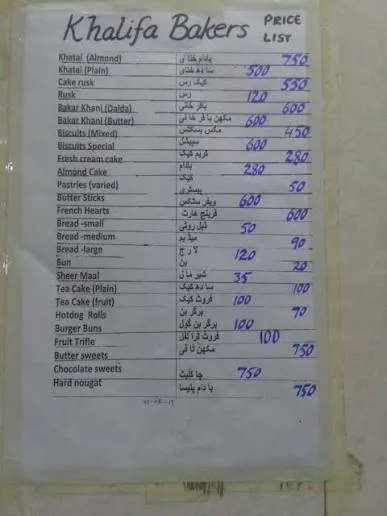 Khalifa Bakers PRICE LIST
Khatai (Almond) بادام ختا ی 750
Khatai (Plain) سا دھ ختای 500
Cake rusk کیک رس 550
Rusk رس 120
Bakar Khani (Dalda) باکر خانی 600
Bakar Khani (Butter) مکھن با قر خا نی 600
Biscuits (Mixed) مکس بسکٹس 450
Biscuits Special سپیشل 600
Fresh cream cake کریم کیک 280
Almond Cake بادام کیک 280
Pastries (varied) پیسٹری 50
Butter Sticks ویفر سٹکس 600
French Hearts فرینچ ہارٹ 600
Bread -small ڈبل روٹی 50
Bread -medium میڈ یم 90
Bread -large لا ر ج 120
Bun بن 20
Sheer Maal شیر ما ل 35
Tea Cake (Plain) سا دھ کیک 100
Tea Cake (fruit) فروٹ کیک 100
Hotdog Rolls برگر بن 70
Burger Buns برگر بن گول 100
Fruit Trifle فروٹ ٹرا ئفل 100
Butter sweets مکھن ٹا فی 750
Chocolate sweets چا کلیٹ 750
Hard nougat با دام پٹیسا 750